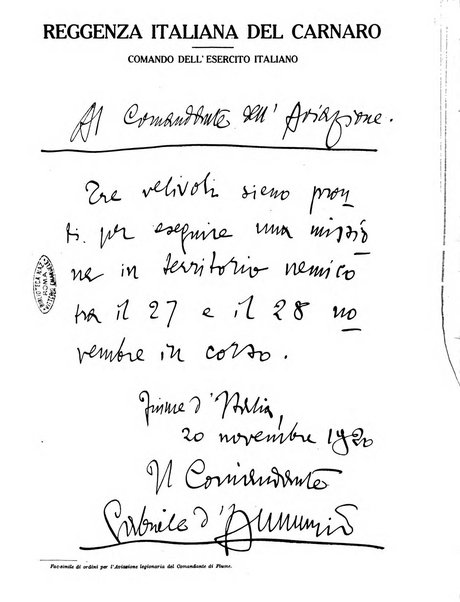 REGGENZA ITALIANA DEL CARNARO
COMANDO DELL'ESERCITO ITALIANO
Al Comandante dell'Aviazione.
Tre velivoli sieno pron
ti per eseguire una missio
ne in territorio nemico
tra il 27 e il 28 no
vembre in corso.
Fiume d'Italia,
20 novembre 1920
Il Comandante
Gabriele d'Annunzio
Fac-simile di ordini per l'Aviazione legionaria del Comandante di Fiume.